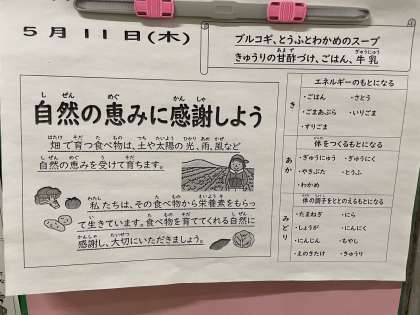 5月11日(木)
プルコギ、とうふとわかめのスープ
きゅうりの甘酢づけ、ごはん、牛乳
自然の恵みに感謝しよう
畑で育つ食べ物は、土や太陽の光、雨、風など
自然の恵みを受けて育ちます。
私たちは、その食べ物から栄養素をもらっ
て生きています。食べ物を育ててくれる自然に
感謝し、大切にいただきましょう。
き
エネルギーのもとになる
・ごはん ・さとう
・ごまあぶら ・いりごま
・すりごま
あか
体をつくるもとになる
・ぎゅうにゅう ・ぎゅうにく
・やきぶた ・とうふ
・わかめ
みどり
体の調子をととのえるもとになる
・たまねぎ ・にら
・しょうが ・にんにく
・にんじん ・もやし
・えのきたけ ・きゅうり